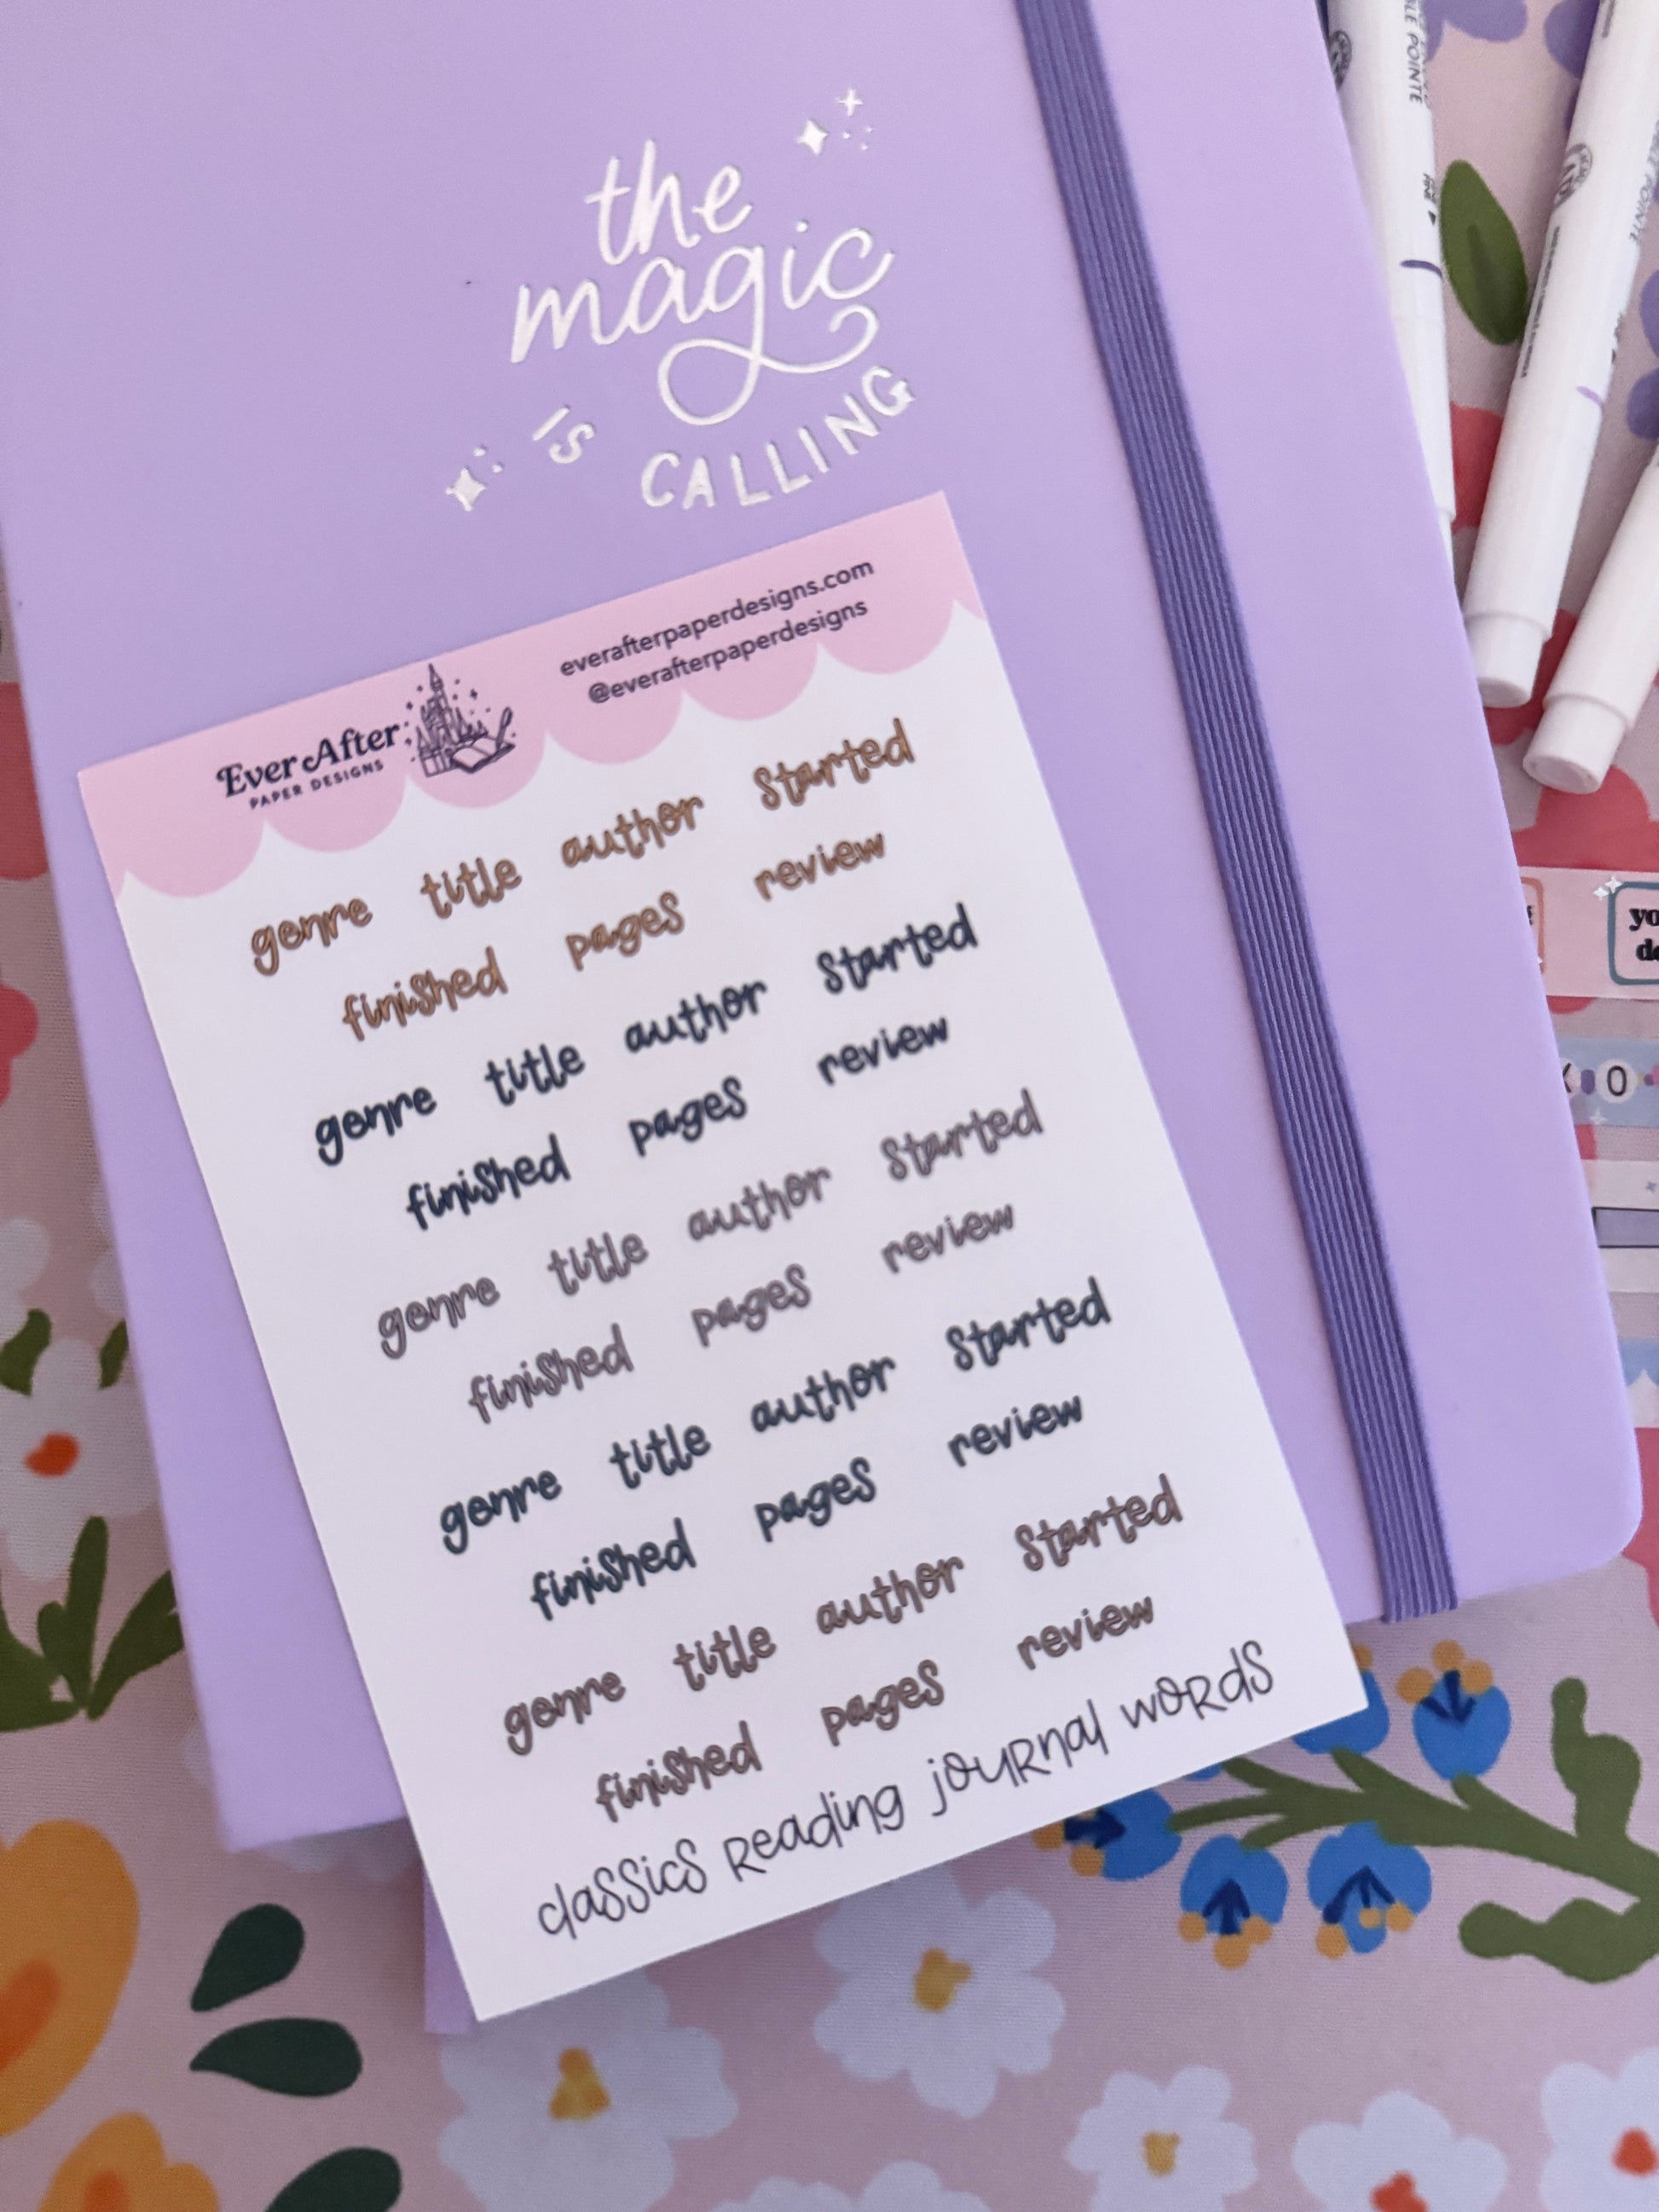 the
magic
IS CALLING
Ever After
PAPER DESIGNS
everafterpaperdesigns.com
@everafterpaperdesigns
genre title author started
finished pages review
genre title author started
finished pages review
genre title author started
finished pages review
genre title author started
finished pages review
genre title author started
finished pages review
classics reading journal words
POINTE
POINTE
yo
O